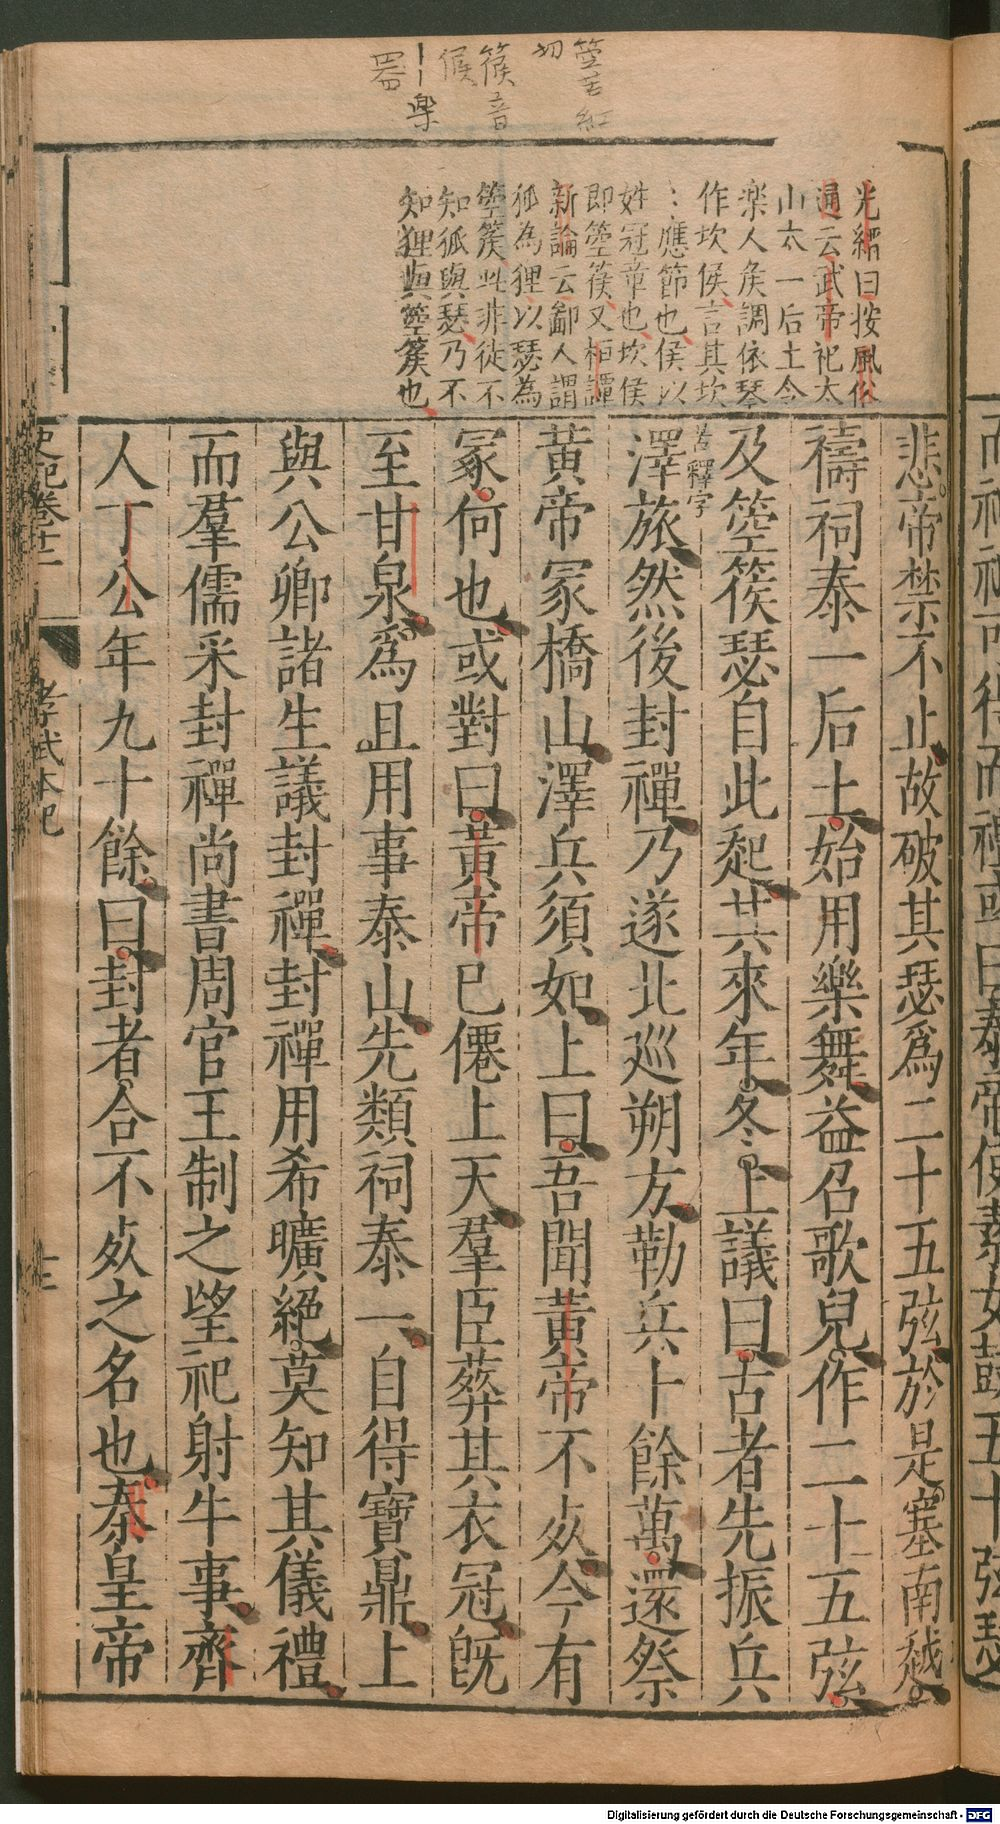 箜苦紅
切
篌音
候
〡〡楽
器
光縉曰按風俗
通云武帝祀太
山太一后土令
楽人侯調依琴
作坎侯言其坎
〻應節也侯以
姓冠章也坎侯
即箜篌又桓譚
新論云鄙人謂
狐為狸以瑟為
箜篌此非徒不
知狐與瑟乃不
知狸與箜篌也
悲帝禁不止故破其瑟爲二十五弦於是塞南越
禱祠泰一后土始用樂舞益召歌兒作二十五弦
及箜篌瑟自此起其來年冬上議曰古者先振兵
古釋字
澤旅然後封禪乃遂北巡朔方勒兵十餘萬還祭
黃帝冢橋山澤兵須如上曰吾聞黃帝不死今有
冢何也或對曰黃帝已僊上天羣臣葬其衣冠旣
至甘泉爲且用事泰山先類祠泰一自得寶鼎上
與公卿諸生議封禪封禪用希曠絕莫知其儀禮
而羣儒采封禪尚書周官王制之望祀射牛事齊
人丁公年九十餘曰封者合不死之名也秦皇帝
史記卷十二
孝武本紀
Digitalisierung gefördert durch die Deutsche Forschungsgemeinschaft - DFG